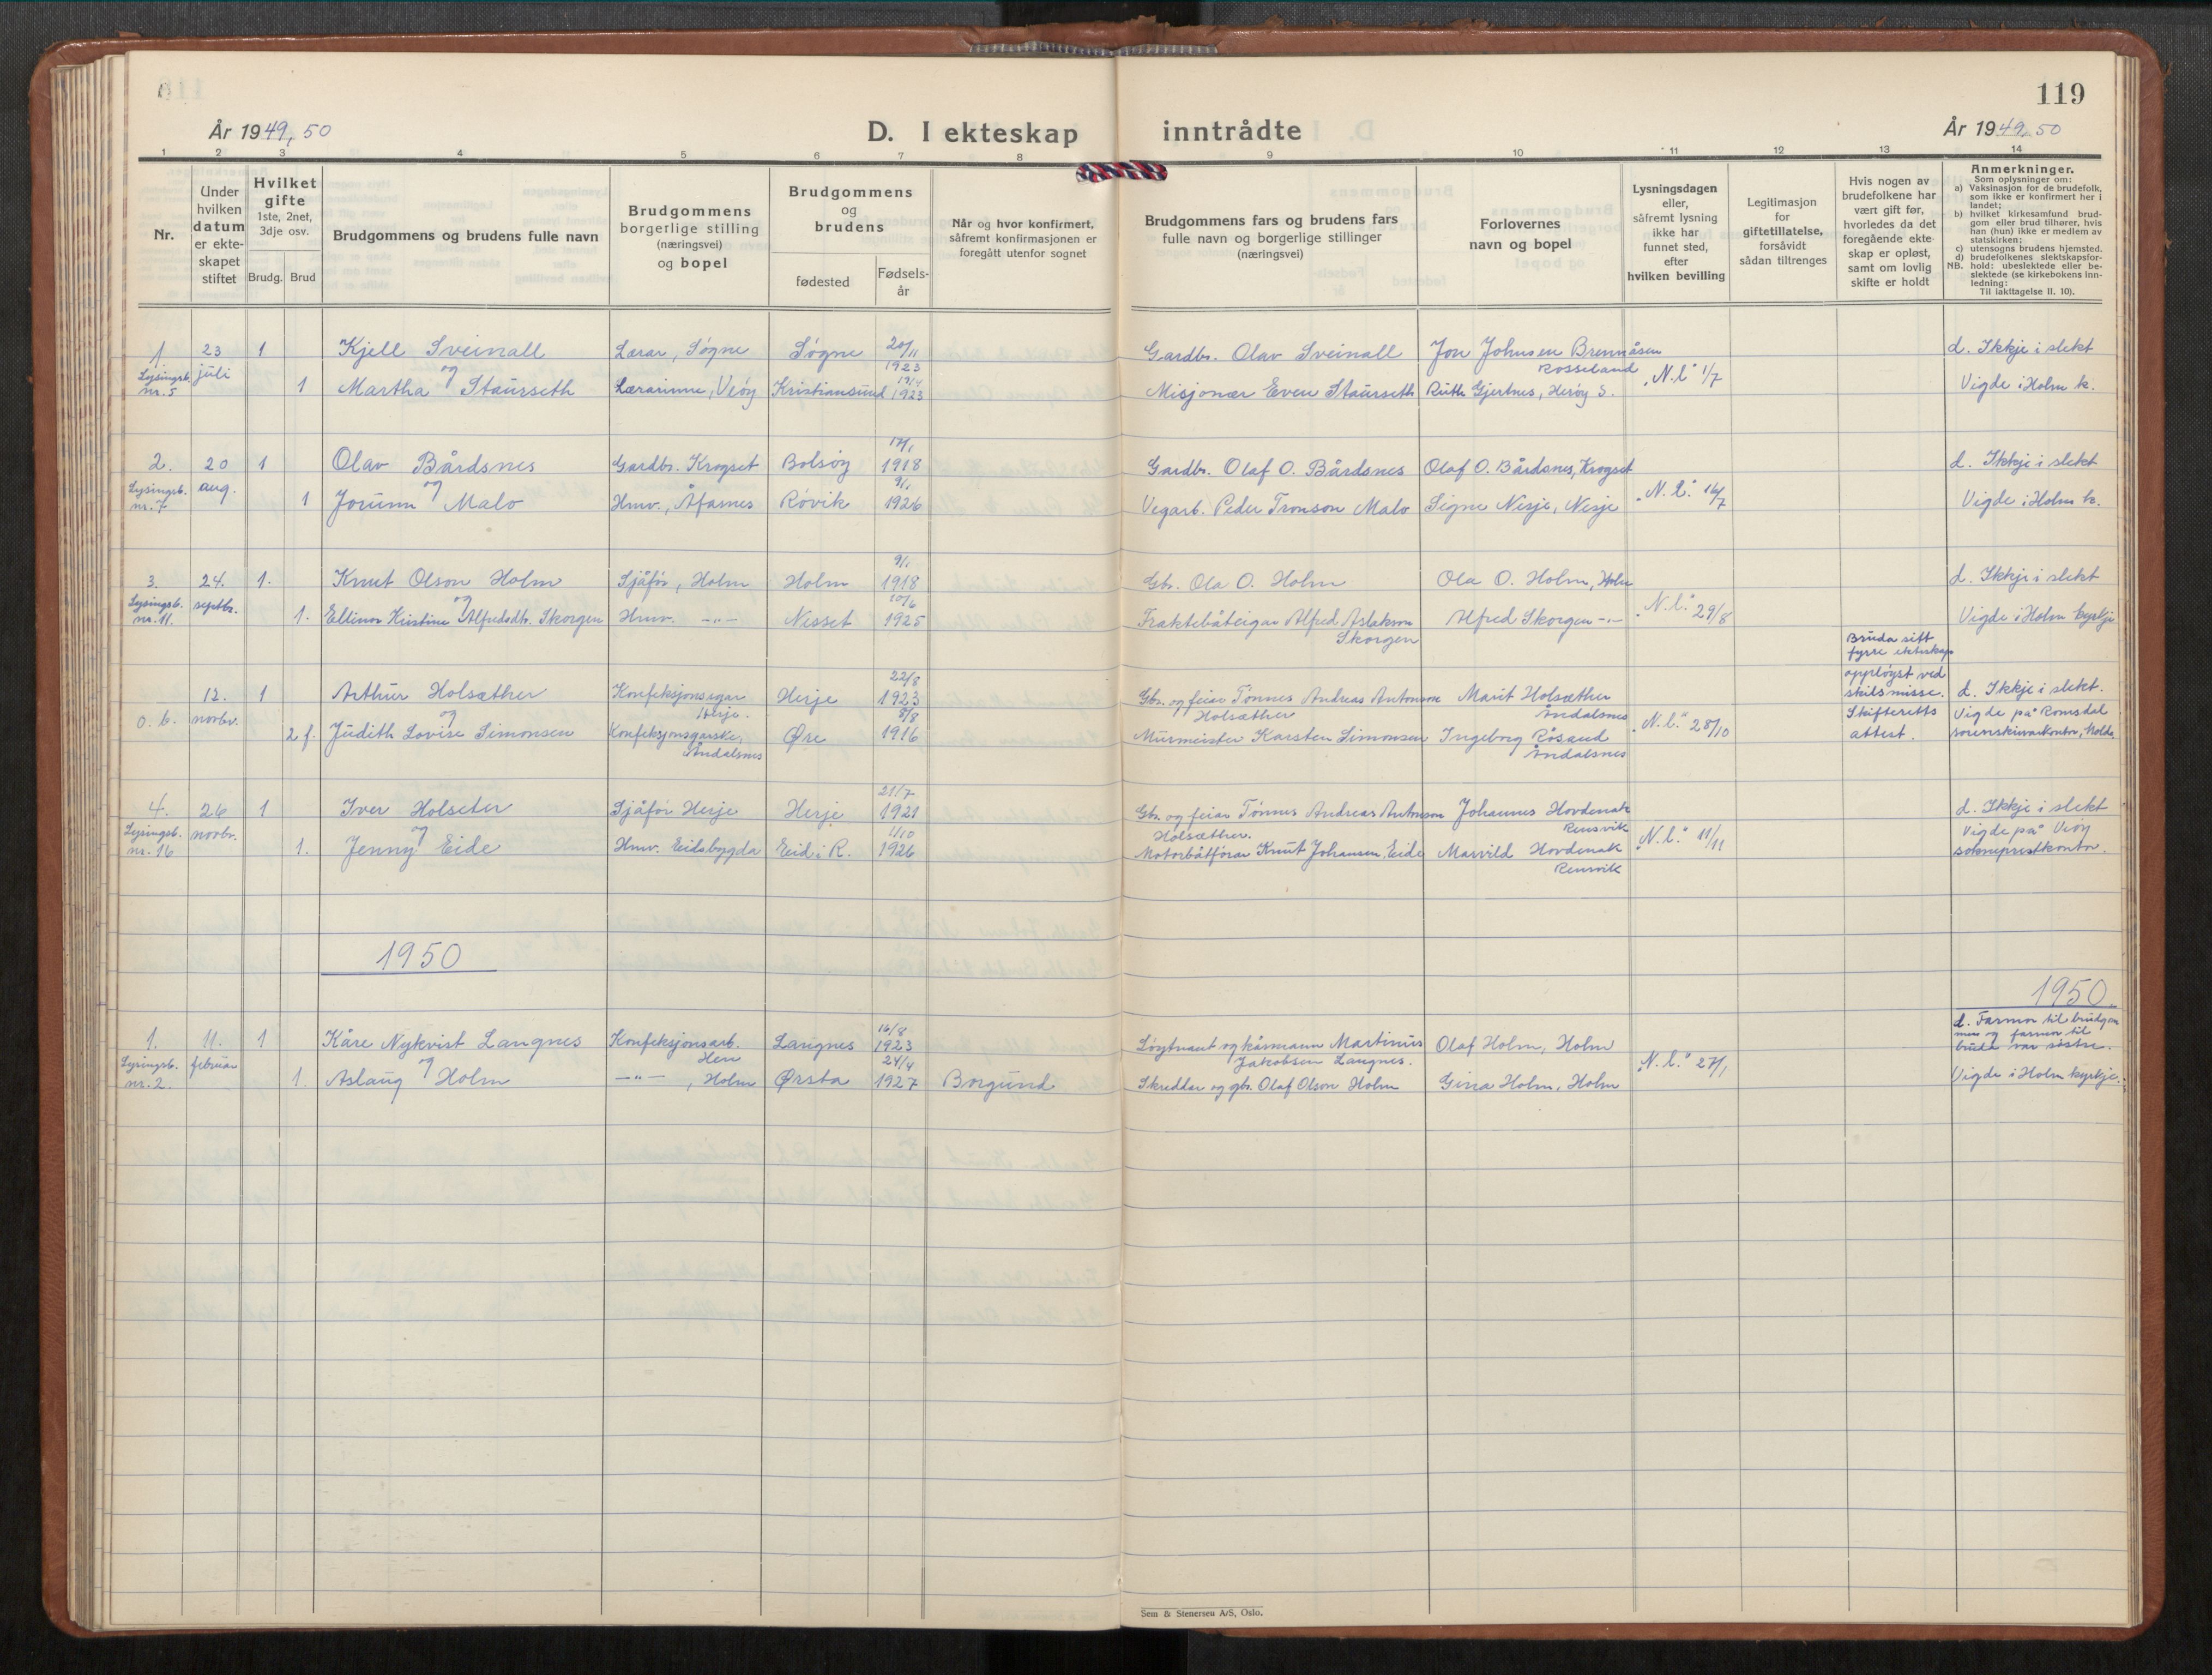 119
År 1949, 50
D. I ekteskap inntrådte
År 1949, 50
1 2 3 4 5 6 7 8 9 10 11 12 13 14
Nr.
Under hvilken datum er ekte-skapet stiftet
Hvilket gifte 1ste, 2net, 3dje osv.
Brudg. Brud
Brudgommens og brudens fulle navn
Brudgommens borgerlige stilling (næringsvei) og bopel
Brudgommens og brudens
fødested
Fødsels-år
Når og hvor konfirmert, såfremt konfirmasjonen er foregått utenfor sognet
Brudgommens fars og brudens fars fulle navn og borgerlige stillinger (næringsvei)
Forlovernes navn og bopel
Lysningsdagen eller, såfremt lysning ikke har funnet sted, efter hvilken bevilling
Legitimasjon for giftetillatelse, forsåvidt sådan tiltrenges
Hvis nogen av brudefolkene har vært gift før, hvorledes da det foregående ekte-skap er opløst, samt om lovlig skifte er holdt
Anmerkninger.
Som oplysninger om:
a) Vaksinasjon for de brudefolk, som ikke er konfirmert her i landet;
b) hvilket kirkesamfund brud-gom eller brud tilhører, hvis han (hun) ikke er medlem av statskirken;
c) utensogns brudens hjemsted.
d) brudefolkenes slektskapsfor-hold: ubeslektede eller be-slektede (se kirkebokens inn-ledning:
NB. Til iakttagelse II. 10).
1 23 1 Kjell Sveinall Lærar, Søgne Søgne 20/11 1923 Gardbr. Olav Sveinall Jon Johnsen Brennåsen Rosseland d. Ikkje i slekt
Lysingsb. nr. 5 juli og
1 Martha Staurseth Lærarinne, Veøy Kristiansund 19/4 1923 Misjonær Even Staurseth Ruth Gjertnes, Herøy S. "N. l." 1/7 Vigde i Holm k.
2. 20 1 Olav Bårdsnes Gardbr. Krogset Bolsøy 17/1 1918 Gardbr. Olaf O. Bårdsnes Olaf O. Bårdsnes, Krogset d. Ikkje i slekt
Lysingsb. nr. 7 aug. og
1 Jorunn Malo Hmv., Åfarnes Røvik 9/1 1926 Vegarb. Peder Tronson Malo Signe Nesje, Nesje "N. l." 16/7 Vigde i Holm k.
3. 24. 1. Knut Olson Holm Sjåfør, Holm Holm 9/1 1918 Gbr. Ola O. Holm Ola O. Holm, Holm d. Ikkje i slekt
Lysingsb. nr. 11. septbr. og
1. Ellinor Kristine Alfredsdtr. Skorgen Hmv. -"- Nesset 20/6 1925 Fraktebåteigar Alfred Aslakson Skorgen Alfred Skorgen -"- "N. l." 29/8 Vigde i Holm kyrkje
Bruda sitt fyrre ekteskap oppløyst ved skilsmisse. Skifteretts attest.
12. 1 Arthur Holsæther Konfeksjonseigar Herje. Herje 22/8 1923 Gbr. og feiar Tønnes Andreas Antonson Holsæther Marit Holsæther Åndalsnes d. Ikkje i slekt.
o. b. novbr. og
2 f. Judith Lovise Simonsen Konfeksjonsgarske, Åndalsnes Øre 8/8 1916 Murmeister Karsten Simonsen Ingeborg Røsand Åndalsnes "N. l." 28/10 Vigde på Romsdal sorenskrivarkontor, Molde
4. 26 1 Iver Holseter Sjåfør Herje Herje 21/7 1921 Gbr. og feiar Tønnes Andreas Antonson Holsæther. Johannes Hovdenak Rensvik d. Ikkje i slekt
Lysingsb. nr. 16 novbr. og
1. Jenny Eide Hmv. Eidsbygda Eid i R. 1/10 1926 Motorbåtførar Knut Johansen Eide Marvild Hovdenak Rensvik "N. l." 11/11 Vigde på Veøy sokneprestkontor.
1950
1950.
1. 11. 1 Kåre Nykvist Langnes Konfeksjonsarb. Hen Langnes 16/8 1923 Løytnant og kårmann Martinus Jakobsen Langnes. Olaf Holm, Holm d. Farmor til brudgommen og farmor til bruda var søstre.
Lysingsb. nr. 2. februar og
1. Aslaug Holm -"-, Holm Ørsta 24/4 1927 Borgund Skreddar og gbr. Olaf Olson Holm Gina Holm, Holm "N. l." 27/1 Vigde i Holm kyrkje.
Sem & Stenersen A/S, Oslo.